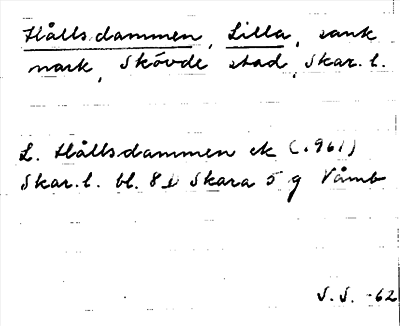 Hållsdammen, Lilla, sank
mark, Skövde stad, Skar. l.
L. Hållsdammen ek (1961)
Skar. l. bl. 8 D Skara 5 g Våmb
S.S. -62